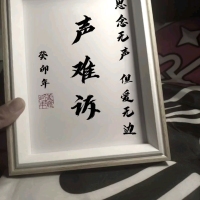 思念无声 但爱无边
声难诉
癸卯年